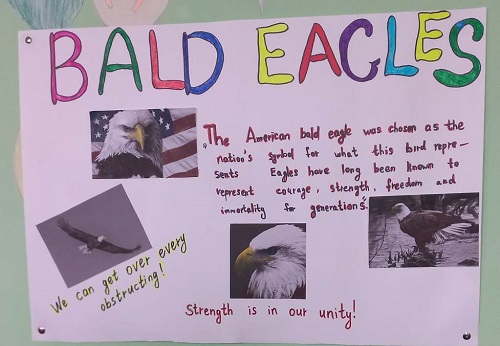 BALD EAGLES
"The American bald eagle was chosen as the
nation's symbol for what this bird repre-
sents Eagles have long been known to
represent courage, strength, freedom and
immortality for generations".
We can get over every
obstructing!
Strength is in our unity!